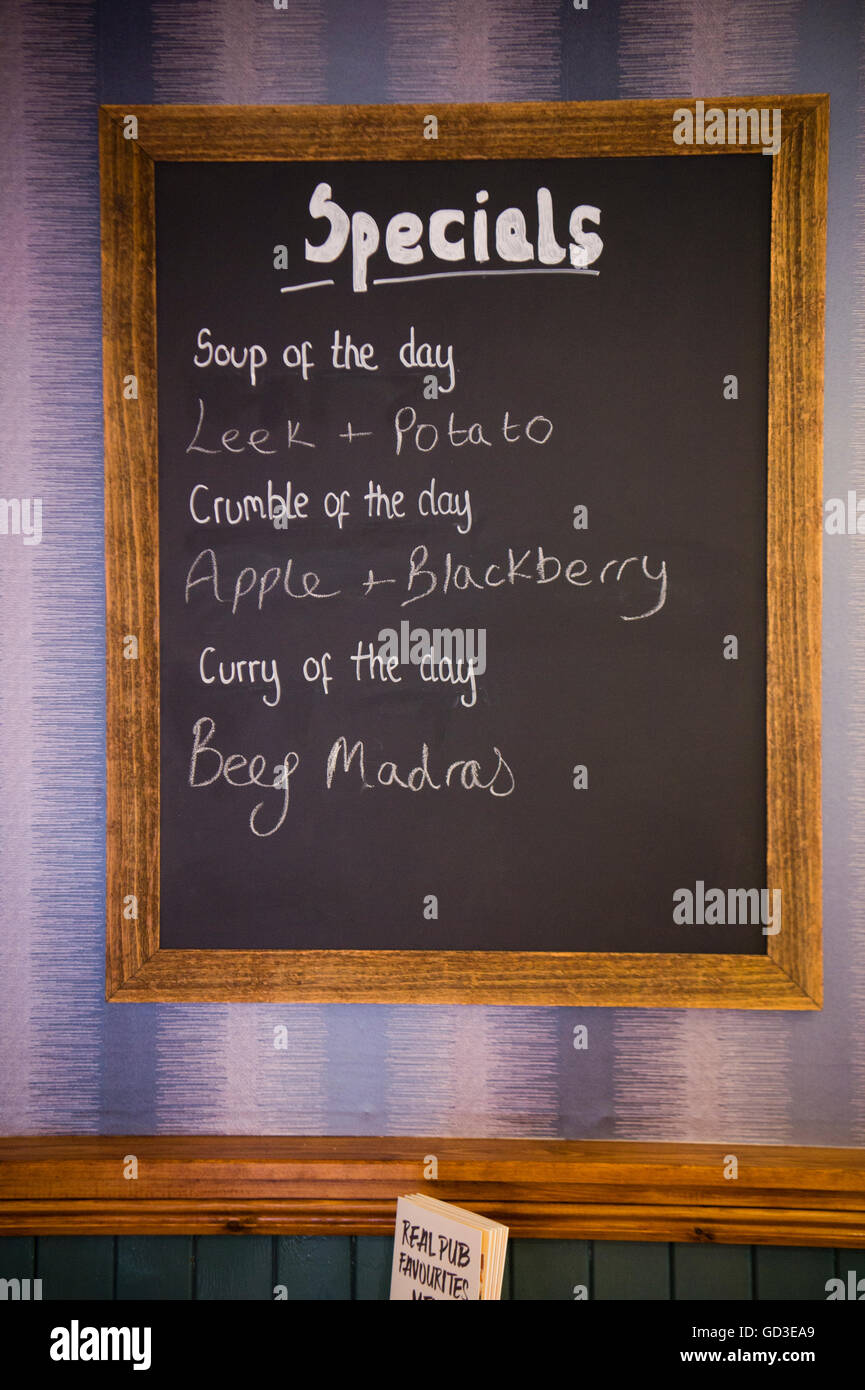 Specials
Soup of the day
Leek + Potato
Crumble of the day
Apple + Blackberry
Curry of the day
Beef Madras
REAL PUB
FAVOURITES
alamy
Image ID: GD3EA9
www.alamy.com